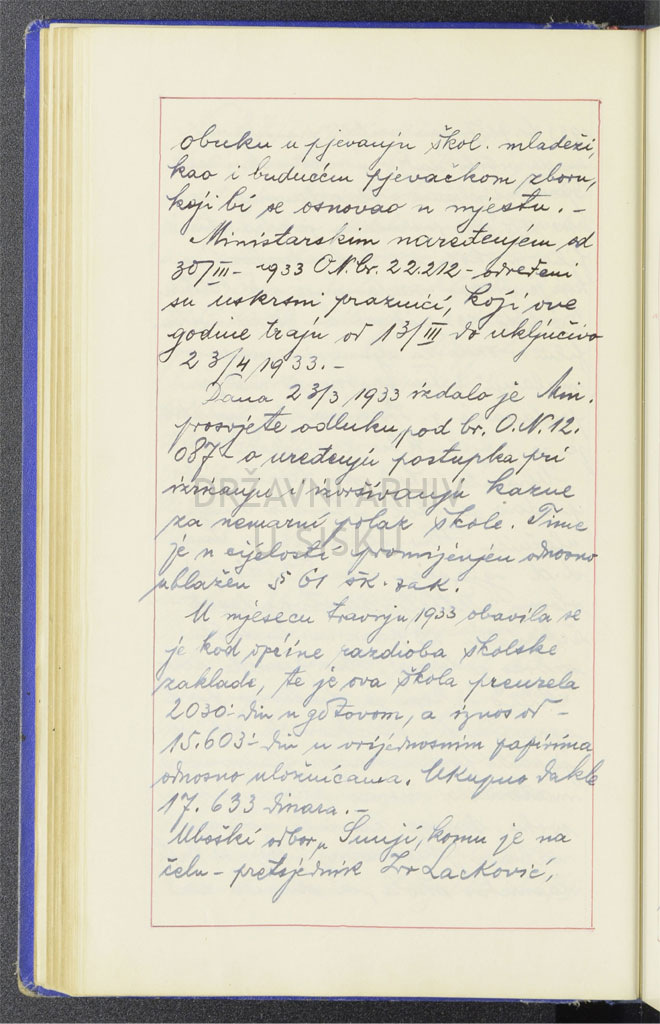 obuku u pjevanju škol. mladeži,
kao i budućem pjevačkom zboru,
koji bi se osnovao u mjestu. –
Ministarskim naređenjem od
30/III – 1933 O.N.br. 22.212 – određeni
su uskrsni praznici, koji ove
godine traju od 13/III do uključivo
23/4 1933. –
Dana 23/3 1933 izdalo je Min.
prosvjete odluku pod br. O.N.12.
087 – o uređenju postupka pri
izricanju i izvršivanju kazne
za nemarni polaz škole. Time
je u cijelosti promijenjen odnosno
ublažen § 61 šk. zak.
U mjesecu travnju 1933 obavila se
je kod općine razdioba školske
zaklade, te je ova škola preuzela
2030 – din u gotovom, a iznos od –
15.603 – din u vrijednosnim papirima
odnosno uložnicama. Ukupno dakle
17.633 dinara. –
odbor u Sunji, komu je na
čelu – pretsjednik Lacković,
DRŽAVNI ARHIV
U SISKU